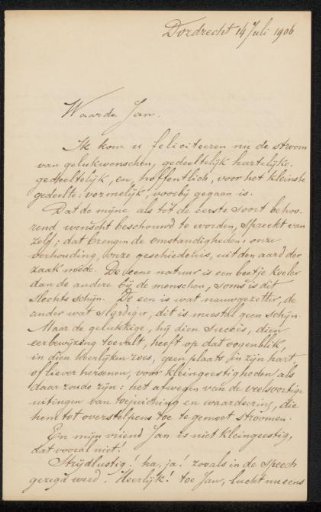 Dordrecht 14 Juli 1906
Waarde Jan.
Ik kom u feliciteeren nu de stroom
van gelukwenschen, gedeeltelijk hartelijke,
gedeeltelijk, en, hoffentlich, voor het kleinste
gedeelte: vormelijk, voorbij gegaan is.
Dat de mijne als tot de eerste soort behoo-
rend, wenscht beschouwd te worden, spreekt van
zelf; dat brengen de omstandigheden: onze
verhouding, onze geschiedenis, uit den aard der
zaak mede. De eene natuur is een beetje koeler
dan de andere bij de menschen, soms is dit
slechts schijn. De een is wat nauwgezetter, de
ander wat slordiger, dit is meestal geen schijn.
Maar de gelukkige, bij dien succes, dien
eerbewijzing toevalt, heeft op dat oogenblik,
in dien heerlijken roes, geen plaats in zijn hart
of liever hersenen, voor kleingeestigheden als
daar zoude zijn: het afwegen van de veelsoortige
uitingen van toejuiching en waardeering, die
hem tot overstelpens toe te gemoet stroomen.
En mijn vriend Jan is niet kleingeestig,
dat vooral niet!
Strijdlustig! ha, ja! zooals in de speech
gezegd werd. Heerlijk! toe Jan, lucht me eens